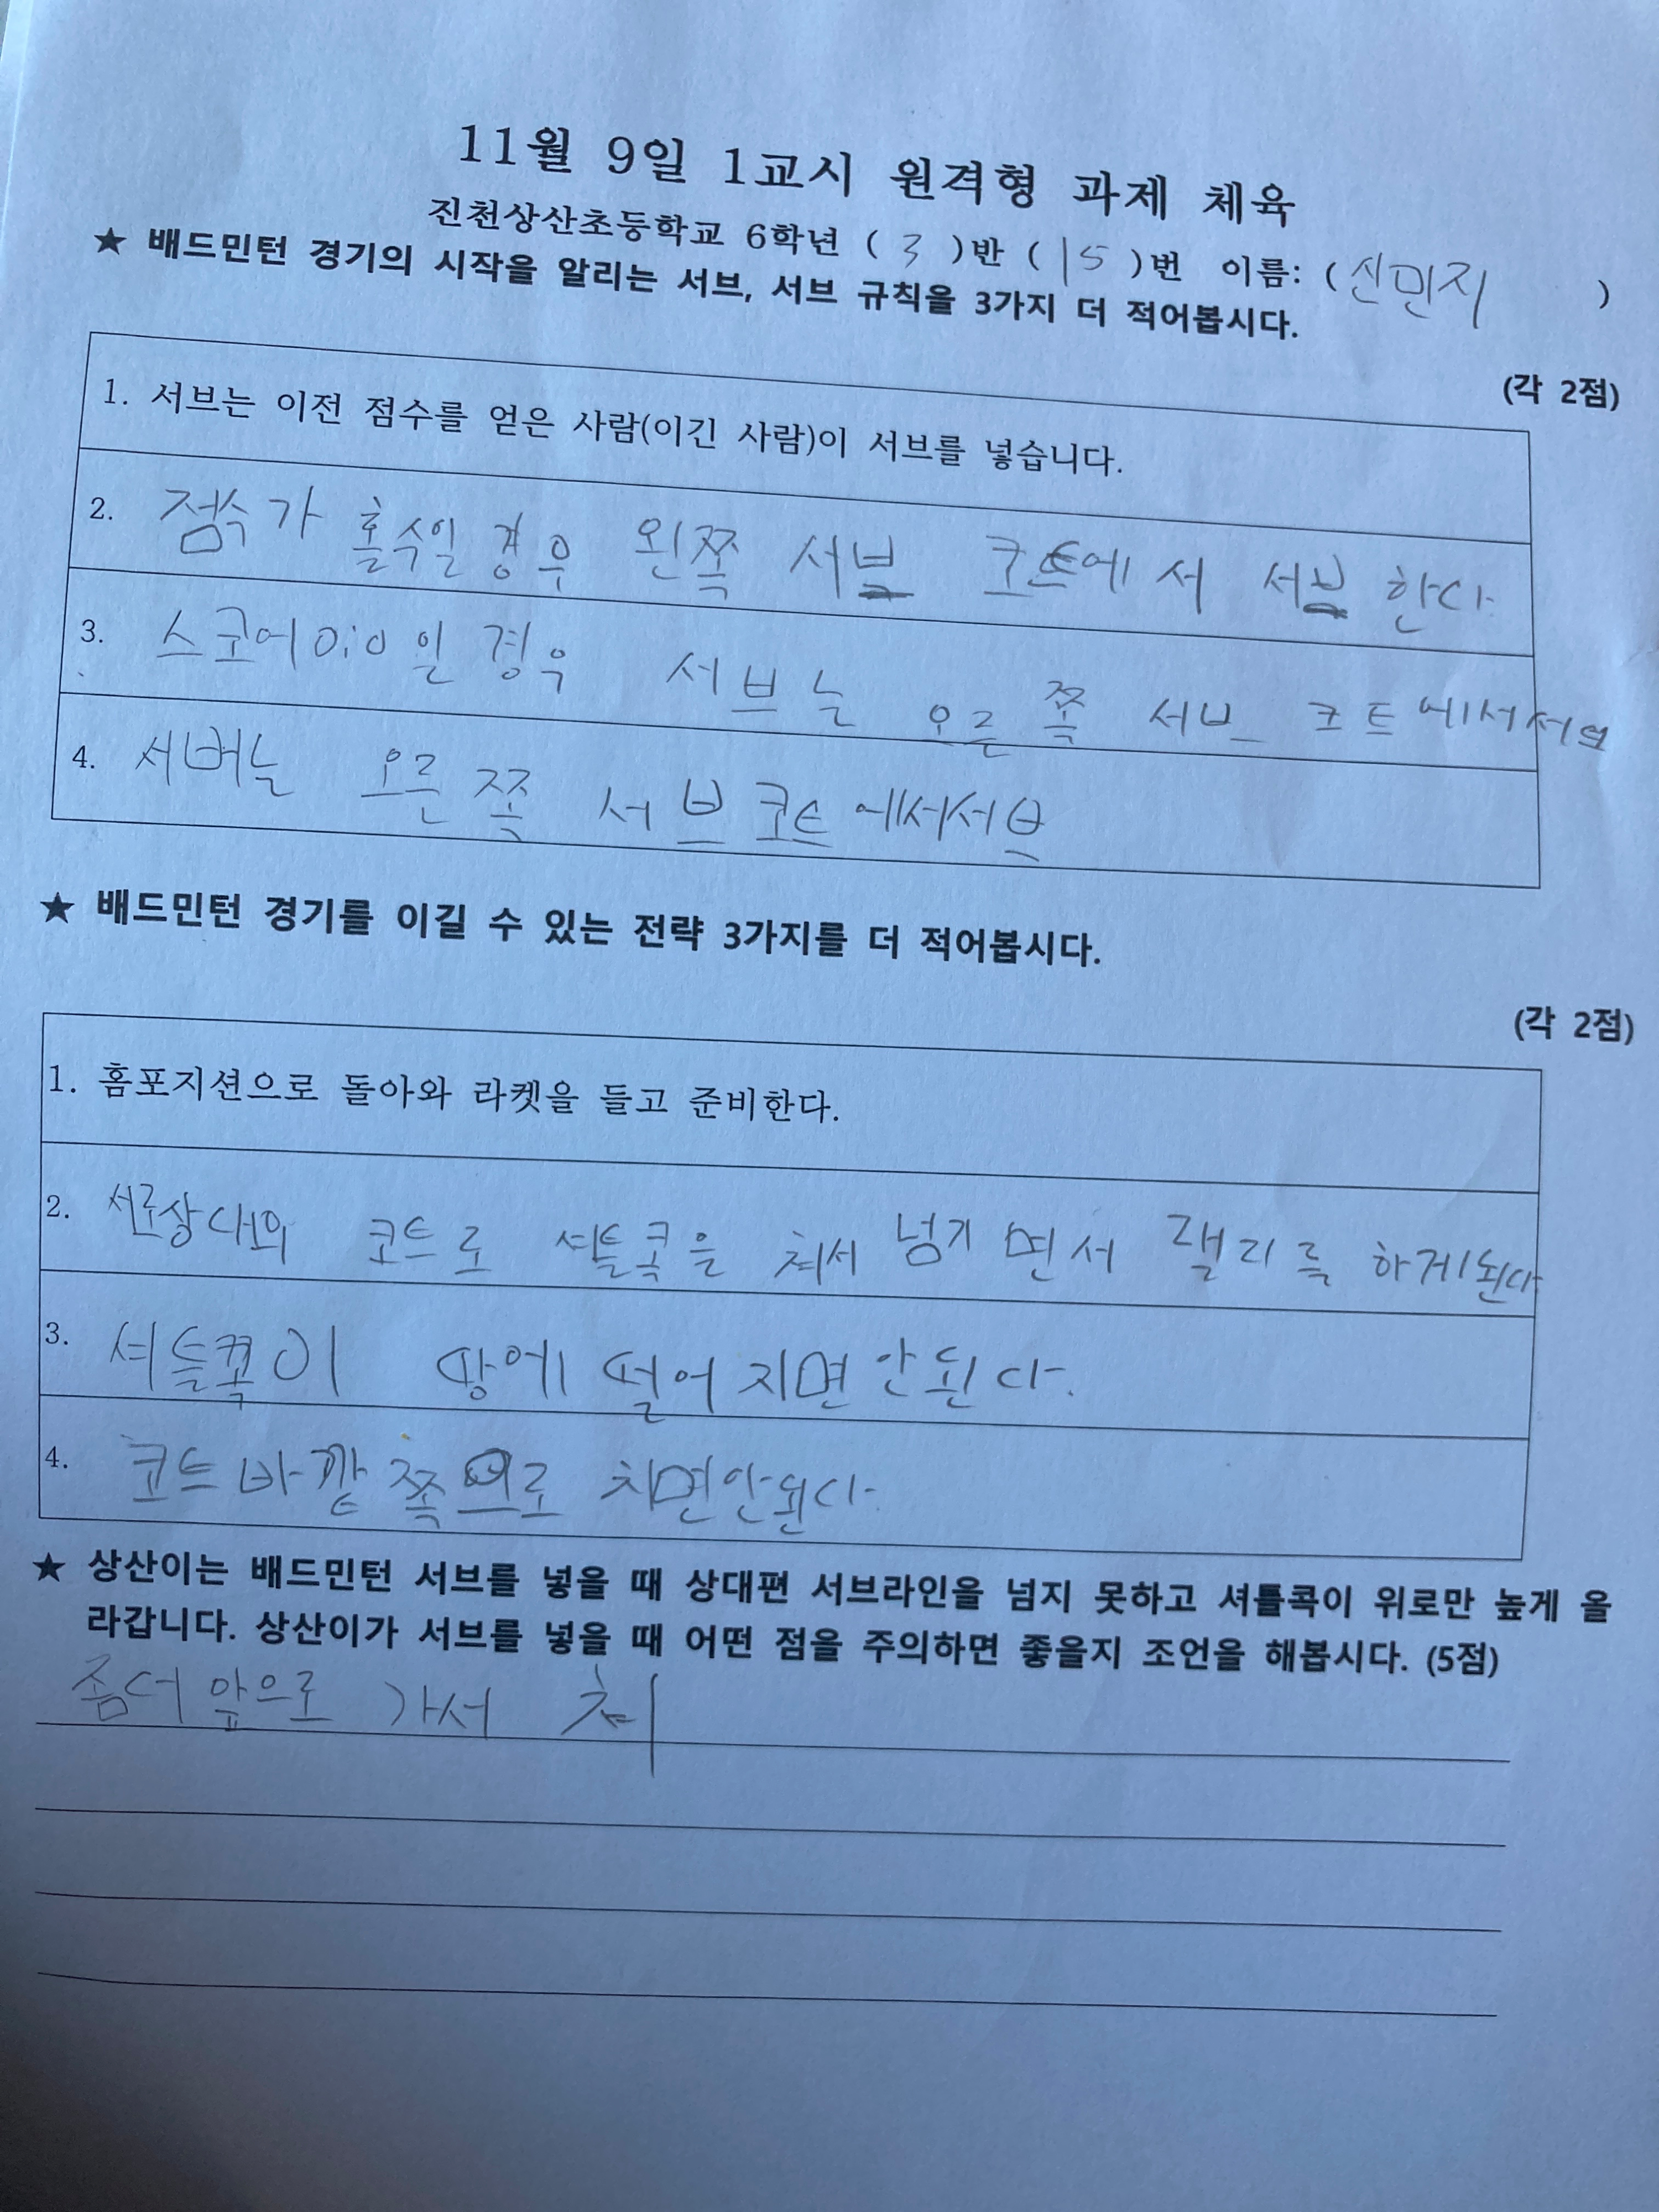 11월 9일 1교시 원격형 과제 체육
진천상산초등학교 6학년 ( 3 )반 ( 15 )번 이름: (신민지 )
★ 배드민턴 경기의 시작을 알리는 서브, 서브 규칙을 3가지 더 적어봅시다.
(각 2점)
1. 서브는 이전 점수를 얻은 사람(이긴 사람)이 서브를 넣습니다.
2. 점수가 홀수일 경우 왼쪽 서브 코트에서 서브 한다
3. 스코어 0:0 일 경우 서브는 오른쪽 서브 코트에서서브
4. 서버는 오른쪽 서브코트에서서브
★ 배드민턴 경기를 이길 수 있는 전략 3가지를 더 적어봅시다.
(각 2점)
1. 홈포지션으로 돌아와 라켓을 들고 준비한다.
2. 서로상대의 코트로 셔틀콕을 쳐서 넘기면서 랠리를 하게된다
3. 셔틀콕이 땅에 떨어지면안된다.
4. 코트바깥쪽으로 치면안된다.
★ 상산이는 배드민턴 서브를 넣을 때 상대편 서브라인을 넘지 못하고 셔틀콕이 위로만 높게 올
라갑니다. 상산이가 서브를 넣을 때 어떤 점을 주의하면 좋을지 조언을 해봅시다. (5점)
좀더 앞으로 가서 쳐